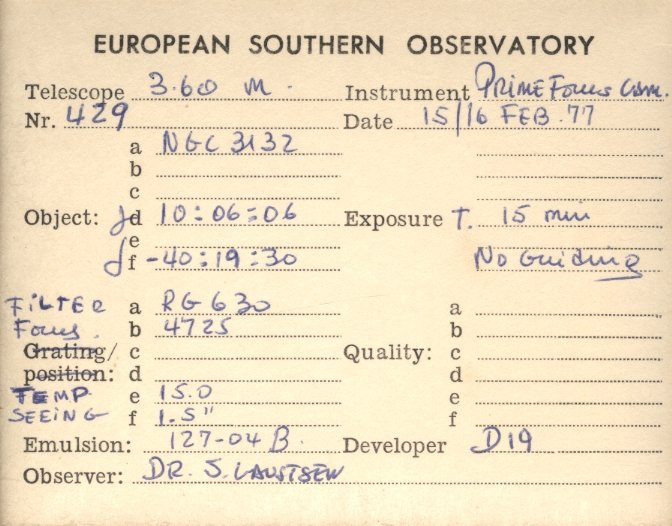 EUROPEAN SOUTHERN OBSERVATORY
Telescope 3.60 m. Instrument PRIME Focus Cam.
Nr. 429 Date 15/16 FEB. 77
a NGC 3132
b
c
Object: d 10:06:06 Exposure T. 15 min
e
f -40:19:30 No Guiding
FILTER a RG 630 a
Focus. b 4725 b
Grating/ c Quality: c
position: d d
TEMP. e 15.0 e
SEEING f 1.5" f
Emulsion: 127-04 B. Developer D19
Observer: DR. S. LAUSTSEN